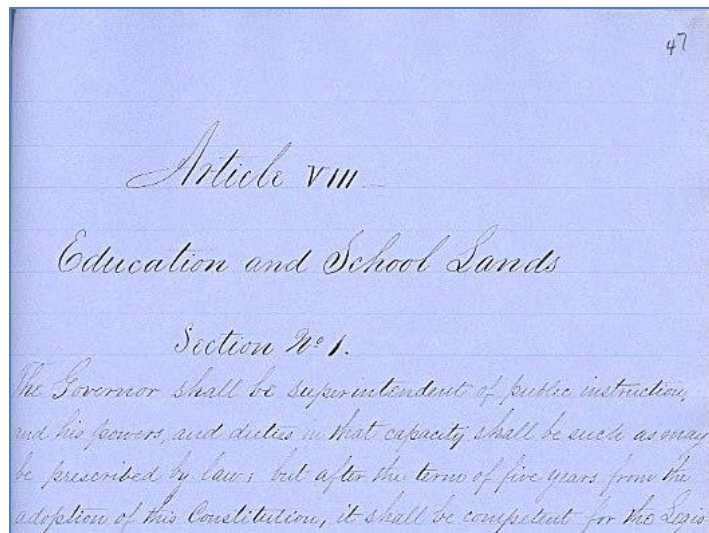 47
Article VIII
Education and School Lands
Section No 1.
The Governor shall be superintendent of public instruction,
and his powers, and duties in that capacity shall be such as may
be prescribed by law; but after the term of five years from the
adoption of this Constitution, it shall be competent for the Legis